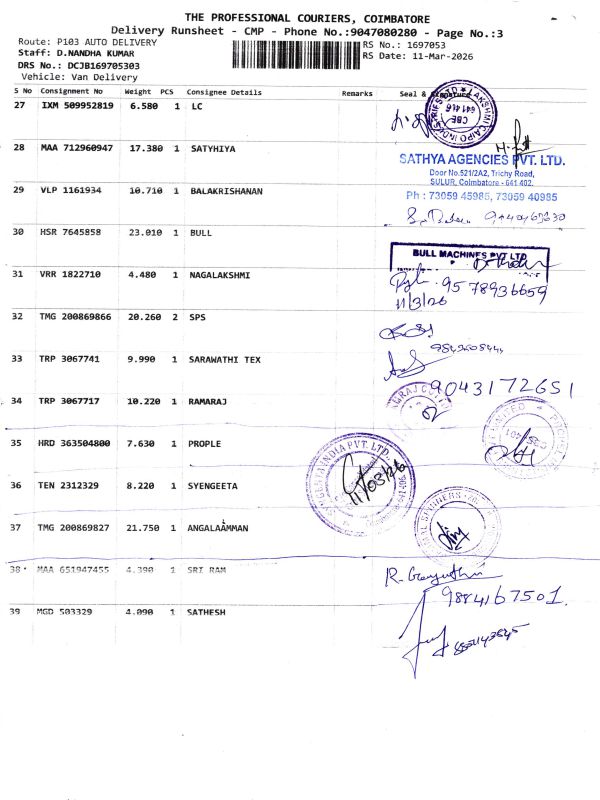 THE PROFESSIONAL COURIERS, COIMBATORE
Delivery Runsheet - CMP - Phone No.:9047080280 - Page No.:3
Route: P103 AUTO DELIVERY
RS No.: 1697053
Staff: D.NANDHA KUMAR
RS Date: 11-Mar-2026
DRS No.: DCJB169705303
Vehicle: Van Delivery
S No Consignment No Weight PCS Consignee Details Remarks Seal & Signature
27 IXM 509952819 6.580 1 LC
28 MAA 712960947 17.380 1 SATYHIYA
SATHYA AGENCIES PVT. LTD.
Door No.521/2A2, Trichy Road,
SULUR, Coimbatore - 641 402.
29 VLP 1161934 10.710 1 BALAKRISHANAN
Ph : 73059 45985, 73059 40985
30 HSR 7645858 23.010 1 BULL
BULL MACHINES PVT LTD
31 VRR 1822710 4.480 1 NAGALAKSHMI
9578936659
11/3/26
32 TMG 200869866 20.260 2 SPS
33 TRP 3067741 9.990 1 SARAWATHI TEX
9043172651
34 TRP 3067717 10.220 1 RAMARAJ
35 HRD 363504800 7.630 1 PROPLE
36 TEN 2312329 8.220 1 SYENGEETA
11/03/26
37 TMG 200869827 21.750 1 ANGALAAMMAN
38 MAA 651947455 4.390 1 SRI RAM
9884167501.
39 MGD 503329 4.090 1 SATHESH